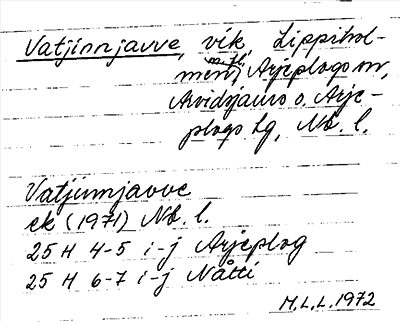 Vatjinnjavve, vik, Lippibol-
men, m.fl., Arjeplogs sn,
Arvidsjaurs o. Arje-
plogs tg, Nb. l.
Vatjinnjavve
ek (1971) Nb. l.
25 H 4-5 i-j Arjeplog
25 H 6-7 i-j Nåtti
M.L.L. 1972